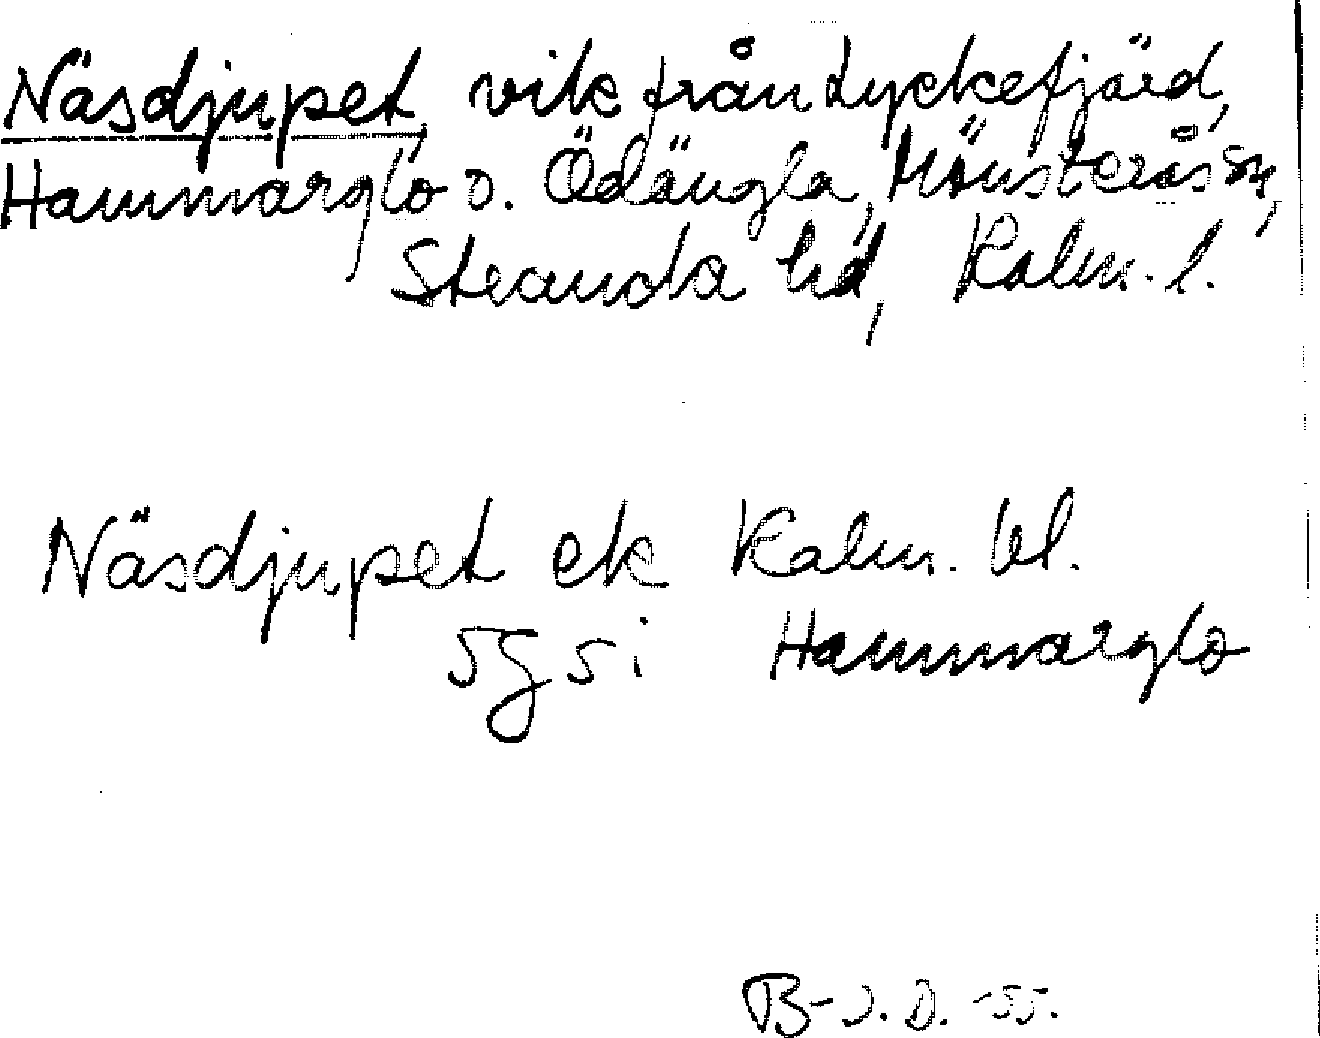 Näsdjupet, vik från Lyckefjärd,
Hammarglo o. Ödängla, Mönsterås sn,
Stranda hd, Kalm. l.
Näsdjupet ek Kalm. bl.
5g5i Hammarglo
B-J. D. -55.